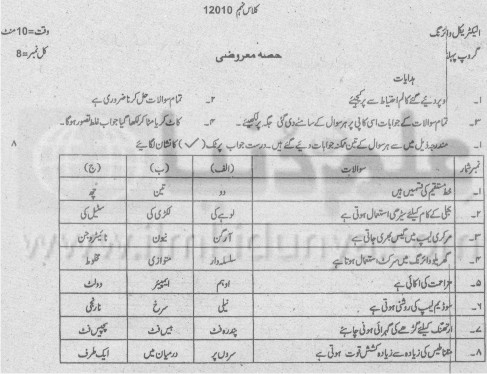 کلاس نہم 12010
الیکٹریکل وائرنگ
وقت=10 منٹ
گروپ پہلا
حصہ معروضی
کل نمبر=8
ہدایات
۱۔ دیئے گئے کالم احتیاط سے پر کیجئے ۲۔ تمام سوالات حل کرنا ضروری ہے
۳۔ تمام سوالات کے جوابات اسی کاپی پر ہر سوال کے سامنے دی گئی جگہ پر لکھیئے۔ ۴۔ کاٹ کر یا مٹا کر لکھا گیا جواب غلط تصور ہوگا۔
۱۔ مندرجہ ذیل میں سے ہر سوال کے تین ممکنہ جوابات دیئے گئے ہیں۔ درست جواب پر ٹک (✓) کا نشان لگائیے ۸
نمبر شمار سوالات (الف) (ب) (ج)
۱۔ خط مستقیم کی قسمیں ہیں دو تین چھ
۲۔ بجلی کے کام کیلئے سیڑھی استعمال ہوتی ہے لوہے کی لکڑی کی سٹیل کی
۳۔ مرکری لیمپ میں گیس بھری جاتی ہے آرگن نیون نائیٹروجن
۴۔ گھریلو وائرنگ میں سرکٹ استعمال ہوتا ہے سلسلہ دار متوازی مخلوط
۵۔ مزاحمت کی اکائی ہے اوہم ایمپیئر وولٹ
۶۔ سوڈیم لیمپ کی روشنی ہوتی ہے نیلی سرخ نارنجی
۷۔ ارتھنگ کیلئے گڑھے کی گہرائی ہونی چاہئے پندرہ فٹ بیس فٹ پچیس فٹ
۸۔ مقناطیس کی زیادہ سے زیادہ کشش قوت ہوتی ہے سروں پر درمیان میں ایک طرف